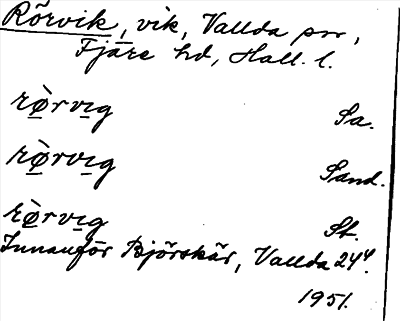 Rörvik, vik, Vallda sn,
Fjäre hd, Hall. l.
rø̀rvıg Sa.
rø̀rvıg Sand.
rø̀rvıg St.
Innanför Björskär, Vallda 24⁴.
1951.